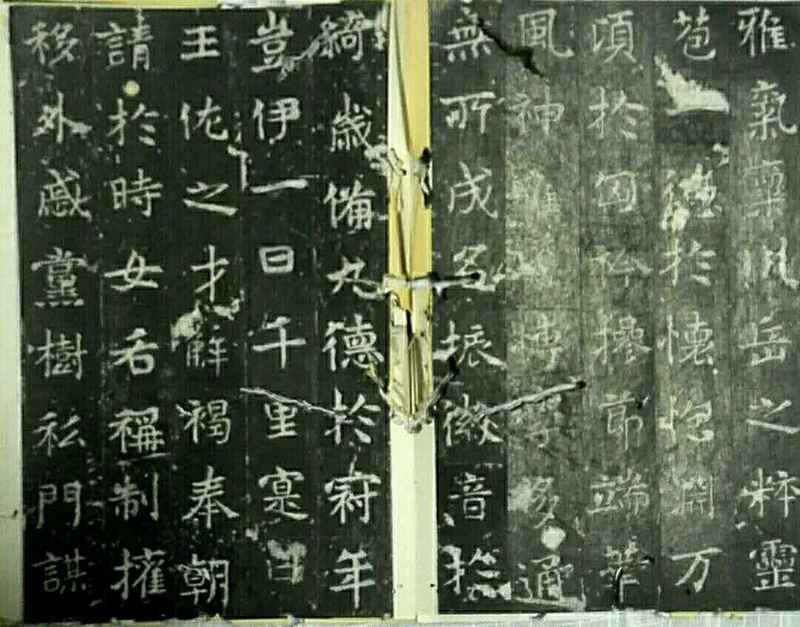 雅氣稟川岳之粹靈
苞一德於懷抱淵万
頃於匈衿摻節端華
風神雅博學多通
無所成名振徽音於
綺歲備九德於年
豈伊一日千里寔曰
王佐之才解褐奉朝
請於時女后稱制擁
移外戚黨樹私門謀